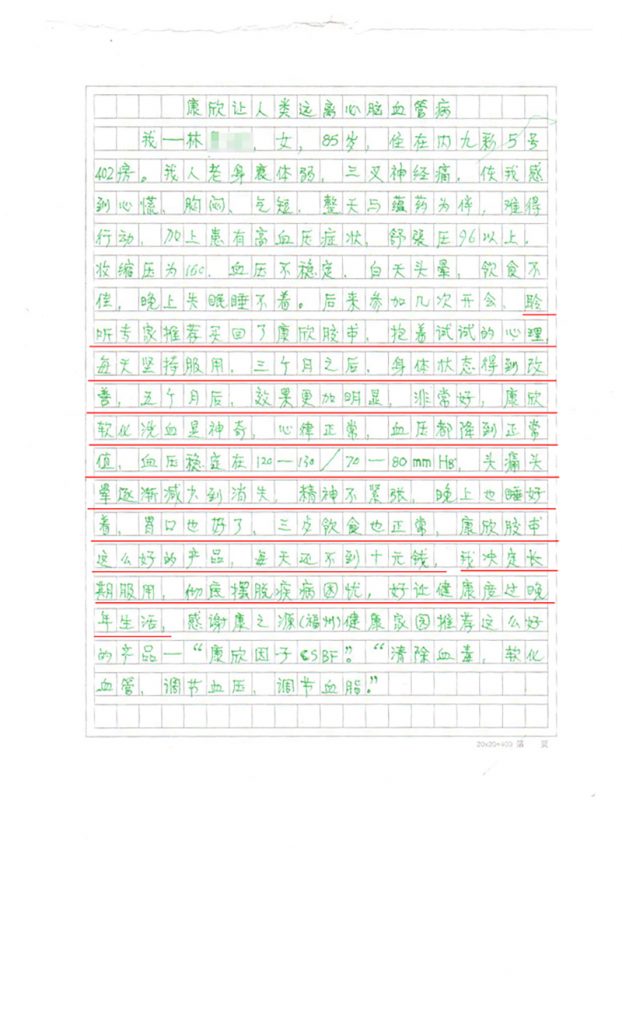 康欣让人类远离心脑血管病
我一林，女，85岁，住在内九彩5号
402房。我人老身衰体弱，三叉神经痛，使我感
到心慌、胸闷、气短，整天与药为伴，难得
行动，加上患有高血压症状，舒张压96以上。
收缩压为160，血压不稳定，白天头晕，饮食不
佳，晚上失眠睡不着。后来参加几次开会，聆
听专家推荐买回了康欣胶囊，抱着试试的心理，
每天坚持服用，三个月之后，身体状态得到改
善，五个月后，效果更加明显，非常好，康欣
软化洗血是神奇，心律正常，血压都降到正常
值，血压稳定在120—130／70—80mmHg，头痛头
晕逐渐减少到消失，精神不紧张，晚上也睡好
着，胃口也好了，三歺饮食也正常，康欣胶囊
这么好的产品，每天还不到十元钱，我决定长
期服用，彻底摆脱疾病困忧，好让健康度过晚
年生活，感谢康之源(福州)健康家园推荐这么好
的产品—“康欣因子CSBF”。“清除血毒，软化
血管，调节血压，调节血脂。”
20×20=400 第 页